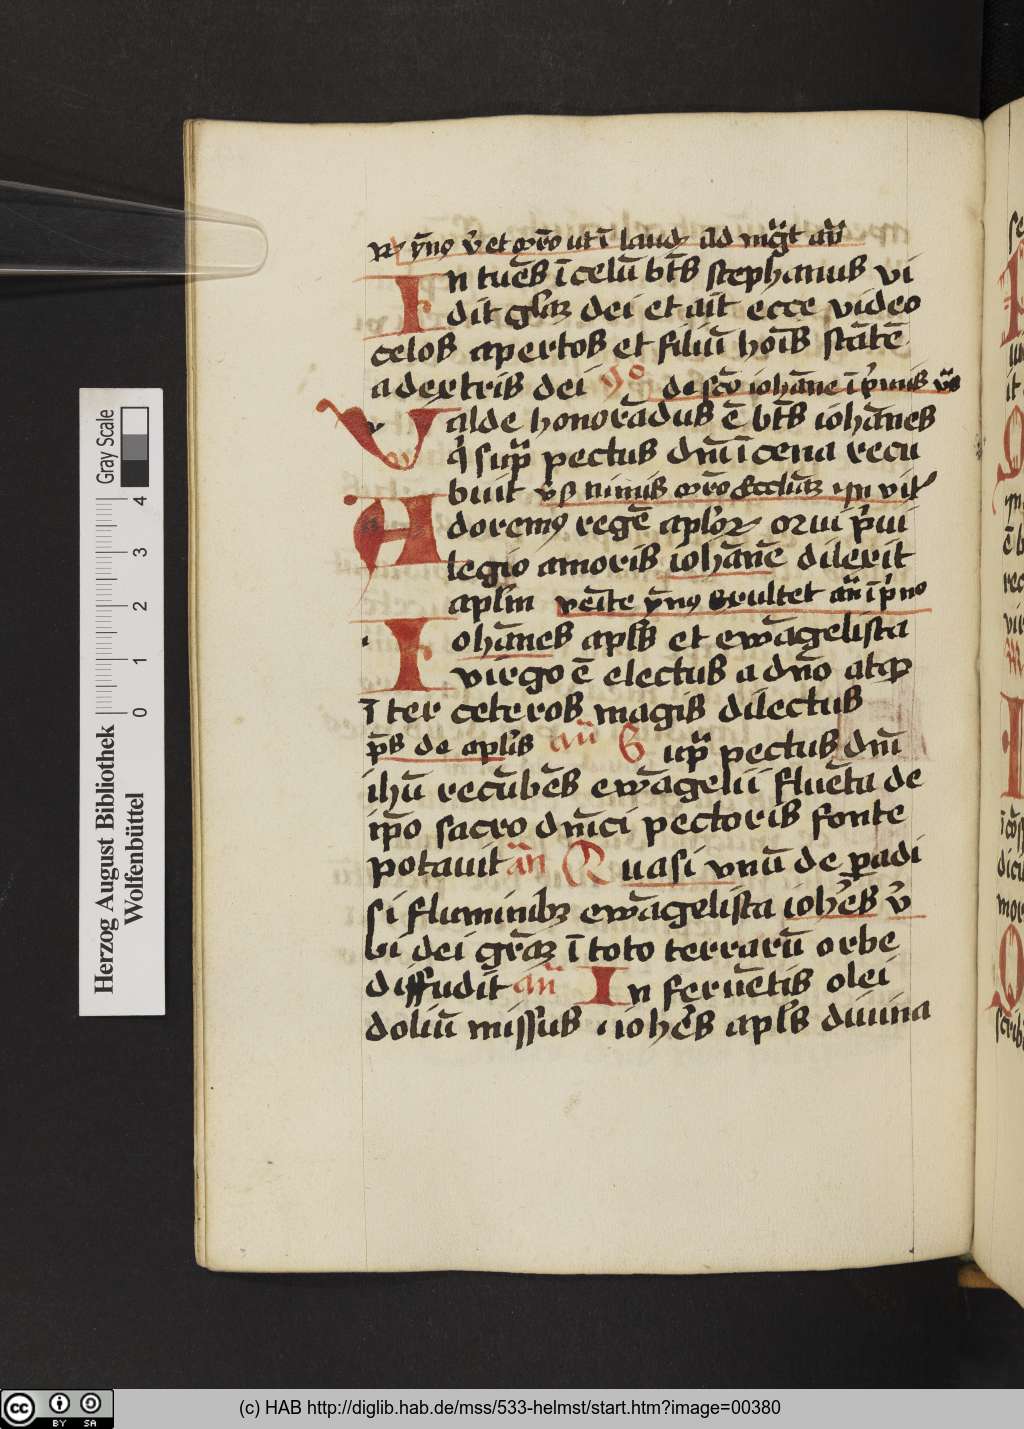 R ẏm̄9 v̄ et or̄o ut ī laud Ad mgn̄t an̄
In tuēs ī celū bt̄s stephanus vi
dit glām dei et ait ecce video
celos apertos et filiū hoīs stātē
a dextris dei de sc̄o iohāne ī pīmis vīs
Valde honorādus ē bt̄s iohānes
q̄ sup̄ pectus dn̄i ī cena recu
buit vs nimis or̄o Eccliām Inuit
Adorem9 regē aplōr qui pīui
legio amoris iohānē dilexit
aplm̄ veīte ẏm̄9 Exultet an̄ ī pīno
Iohānes apls̄ et ewāgelista
virgo ē electus a dn̄o atq3
īter ceteros magis dilectus
p̄s de apl̄is an̄ Sup̄ pectus dn̄i
ihū recūbēs ewāgelii fluēta de
ip̄o sacro dn̄ici pectoris fonte
potauit an̄ Quasi vnū de p̄adi
si fluminib3 ewāgelista ioh̄es v̄
bi dei gr̄am ī toto terrarū orbe
diffudit an̄ In feruētis olei
doliū missus ioh̄es apls̄ diuina
Herzog August Bibliothek
Wolfenbüttel
Gray Scale
0 1 2 3 4
cc BY SA
(c) HAB http://diglib.hab.de/mss/533-helmst/start.htm?image=00380